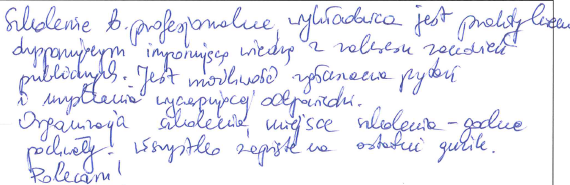 Szkolenie b. profesjonalne, wykładowca jest praktykiem
dysponującym imponującą wiedzą z zakresu zamówień
publicznych. Jest możliwość zgłaszania pytań
i uzyskania wyczerpującej odpowiedzi.
Organizacja szkolenia, miejsce szkolenia - godne
pochwały. Wszystko zapięte na ostatni guzik.
Polecam!